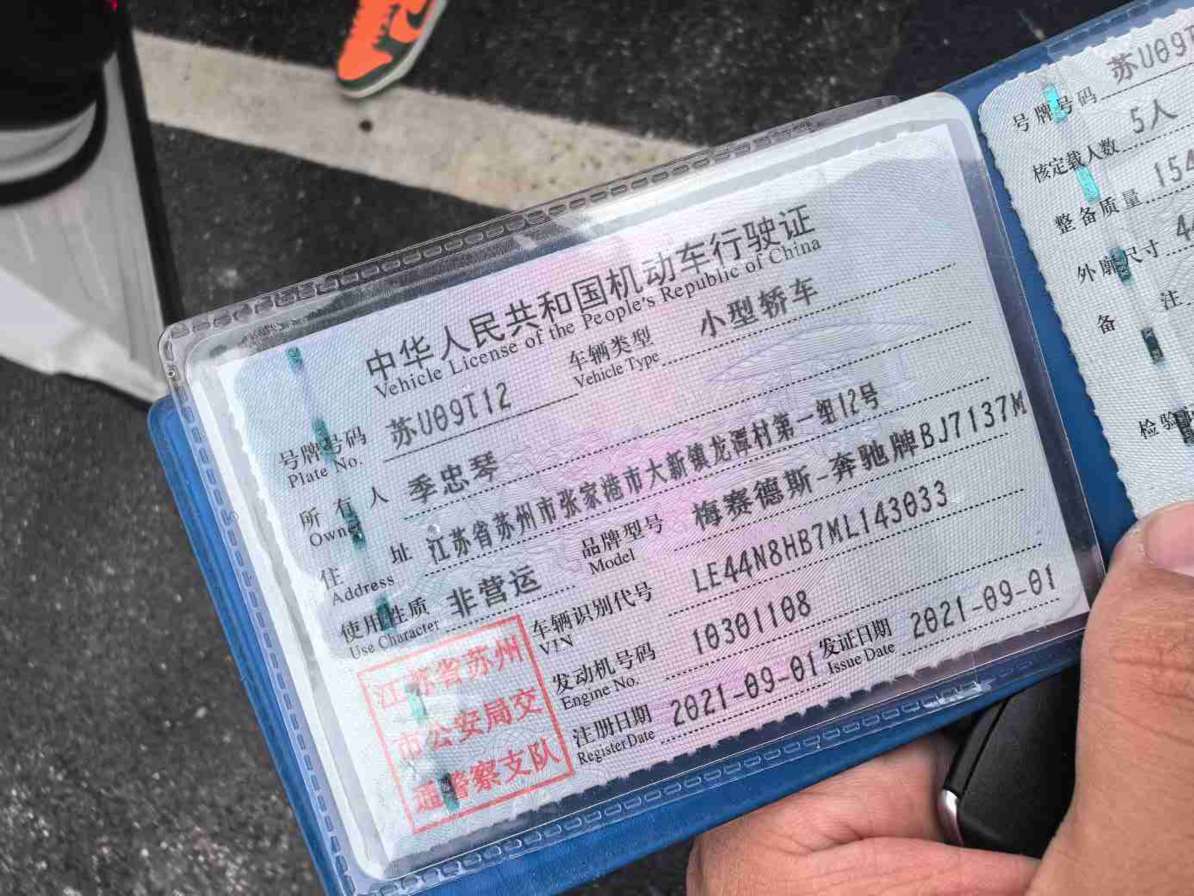 中华人民共和国机动车行驶证
Vehicle License of the People's Republic of China
号牌号码 苏U09T12 车辆类型 小型轿车
Plate No. Vehicle Type
所有人 季忠琴
Owner
住址 江苏省苏州市张家港市大新镇龙潭村第一组12号
Address
使用性质 非营运 品牌型号 梅赛德斯-奔驰牌BJ7137M
Use Character Model
车辆识别代号 LE44N8HB7ML143033
VIN
发动机号码 10301108
Engine No.
注册日期 2021-09-01 发证日期 2021-09-01
Register Date Issue Date
江苏省苏州
市公安局交
通警察支队
号牌号码 苏U09T
核定载人数 5人
整备质量 154
外廓尺寸 4
备注
检验